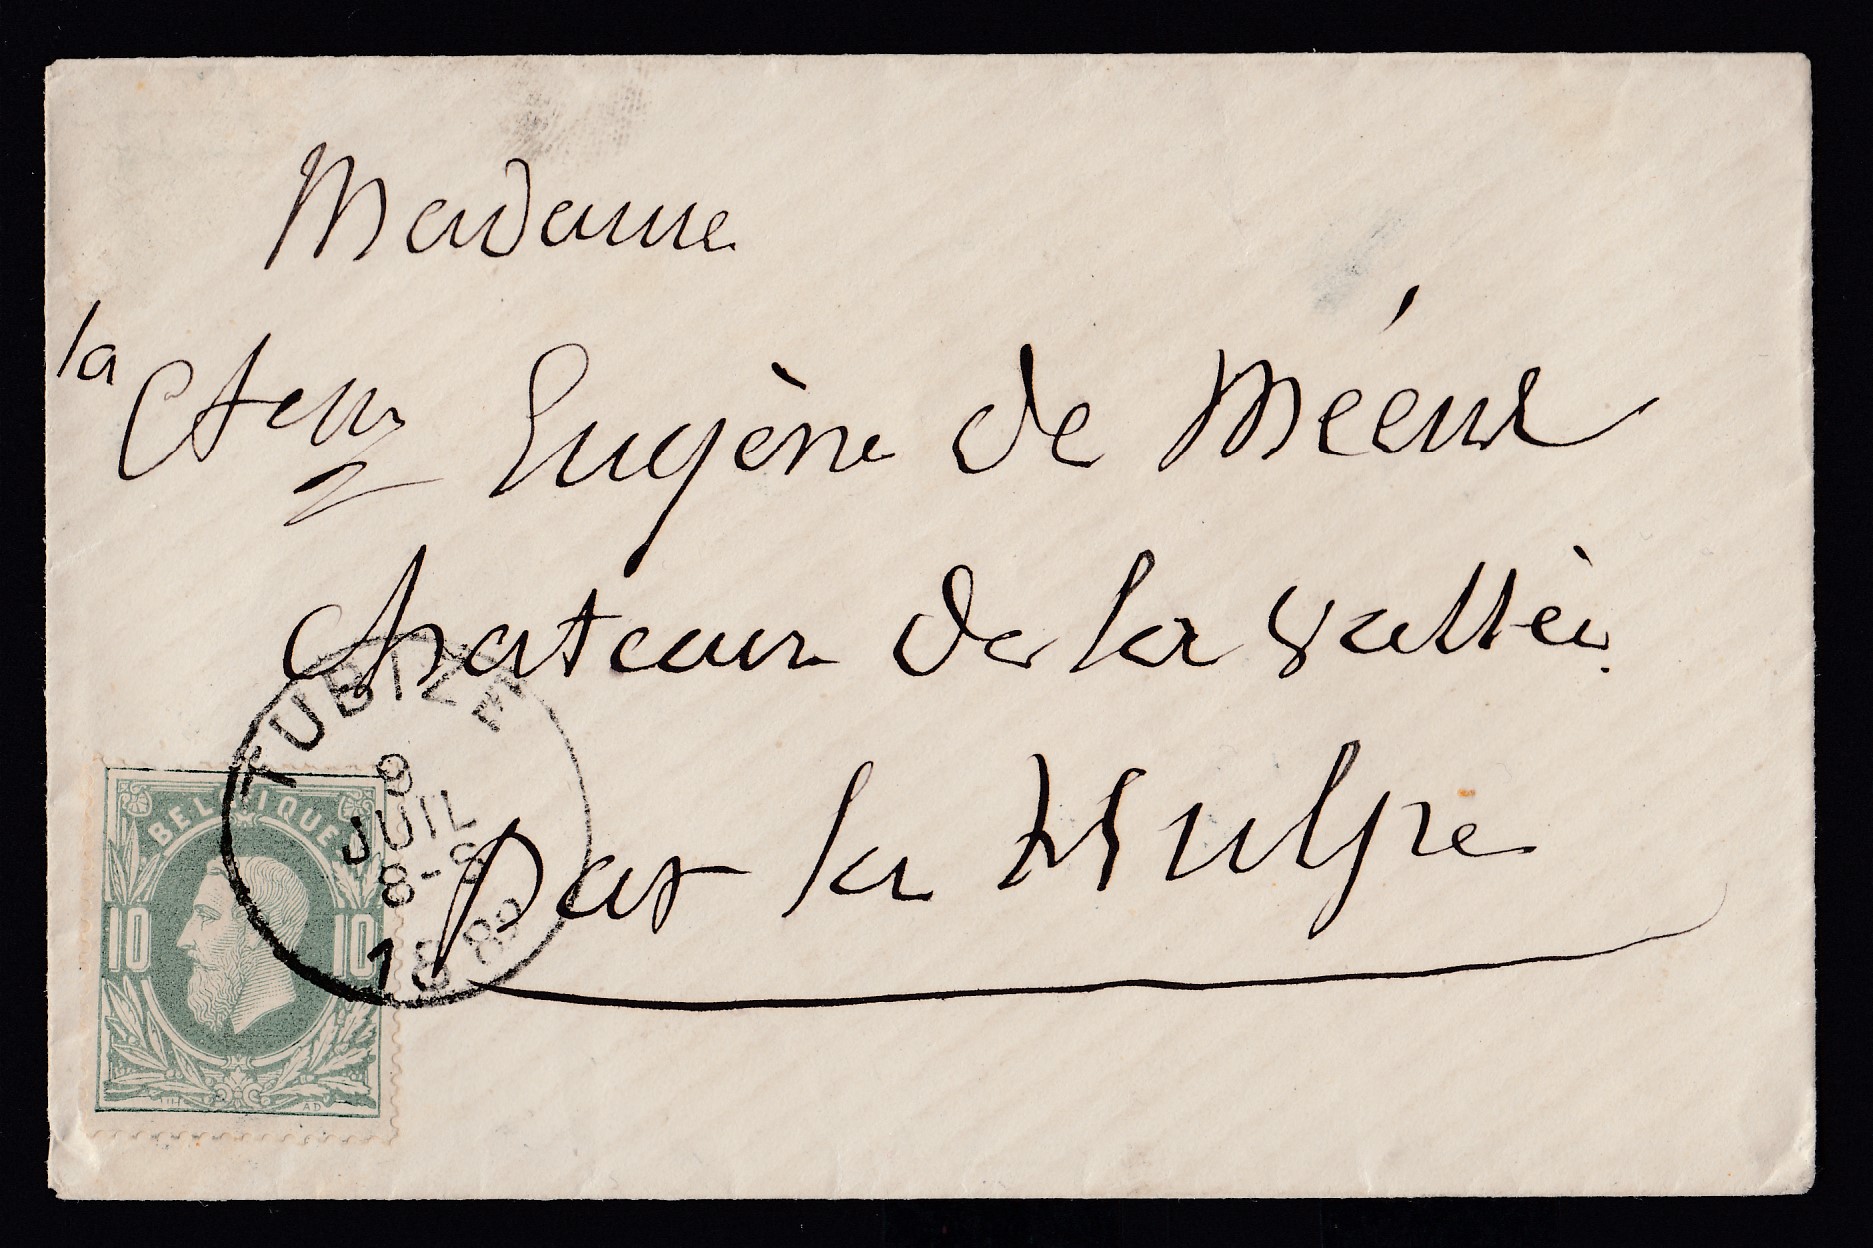 Madame
la Ctesse Eugène de Méeus
chateau de la vallée
par la Hulpe
TUBIZE
9
JUIL
8-S
1882
BELGIQUE
10 10